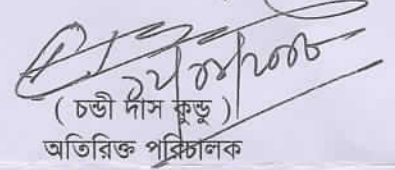 ( চন্ডী দাস কুন্ডু )
অতিরিক্ত পরিচালক